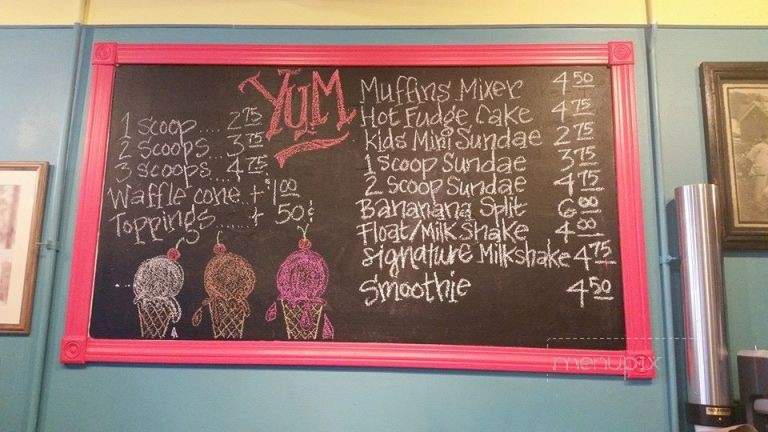 YUM
1 scoop.... 2.75
2 scoops.. 3.75
3 scoops.. 4.75
Waffle cone + 1.00
Toppings..... + 50¢
Muffins Mixer 4.50
Hot Fudge Cake 4.75
Kids Mini Sundae 2.75
1 scoop Sundae 3.75
2 scoop Sundae 4.75
Bananana Split 6.00
Float/Milk Shake 4.00
Signature Milkshake 4.75
Smoothie 4.50
menupix